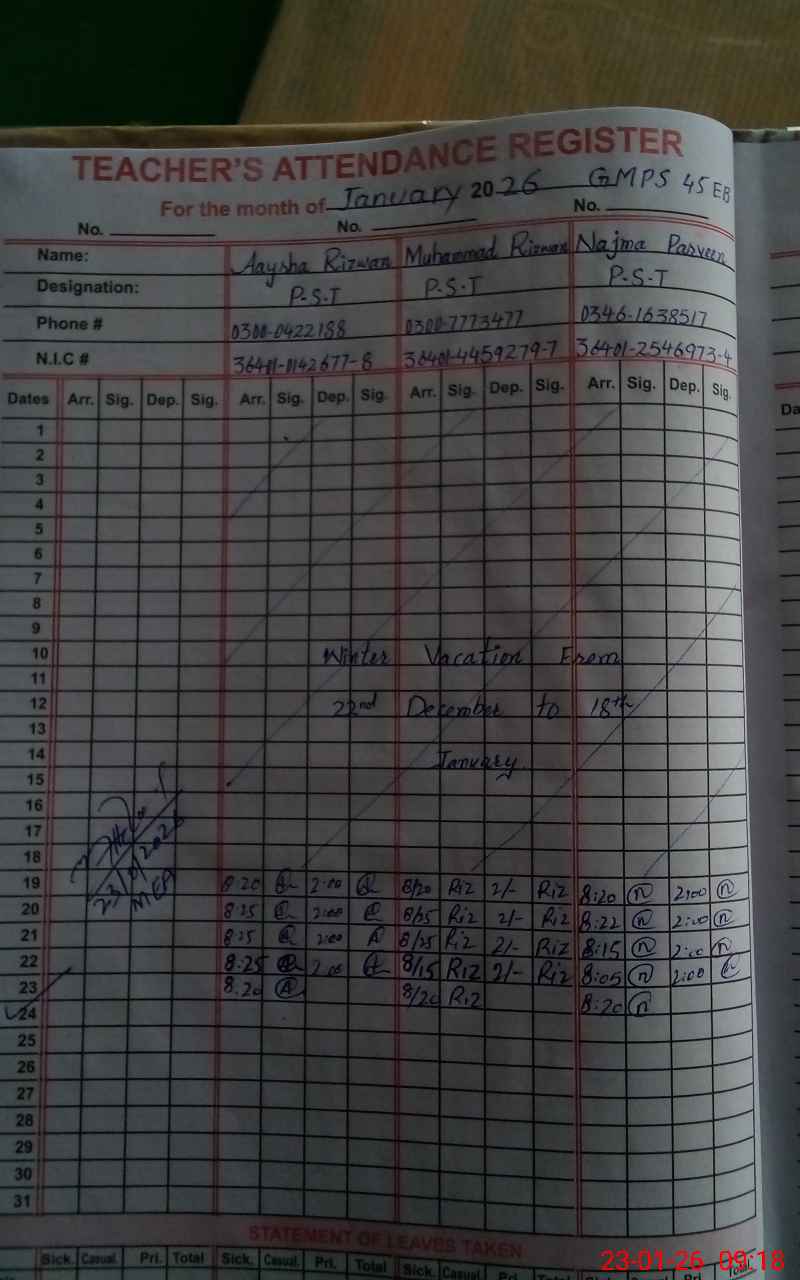 TEACHER'S ATTENDANCE REGISTER
For the month of January 2026 GMPS 45 EB
No. No. No.
Name: Aaysha Rizwan Muhammad Rizwan Najma Parveen
Designation: P.S.T P.S.T P.S.T
Phone # 0300-0422188 0300-7773477 0346-1638517
N.I.C # 36401-0142677-8 36401-4459279-7 36401-2546973-4
Dates Arr. Sig. Dep. Sig. Arr. Sig. Dep. Sig. Arr. Sig. Dep. Sig. Arr. Sig. Dep. Sig.
Da
1
2
3
4
5
6
7
8
9
10 Winter Vacation From
11
12 22nd December to 18th
13
14 January.
15
16
17
18
19 8:20 2:00 8/20 Riz 2/- Riz 8:20 n 2:00 n
20 8:25 2:00 8/25 Riz 2/- Riz 8:22 n 2:00 n
21 8:25 2:00 A 8/25 Riz 2/- Riz 8:15 n 2:00 n
22 8:25 2:00 8/15 Riz 2/- Riz 8:05 n 2:00
23 8:20 A 8/20 Riz 8:20 n
24
25
26
27
28
29
30
31
STATEMENT OF LEAVES TAKEN
Sick. Casual. Pri. Total Sick. Casual. Pri. Total Sick. Casual. Pri. Total
23-01-26 09:18